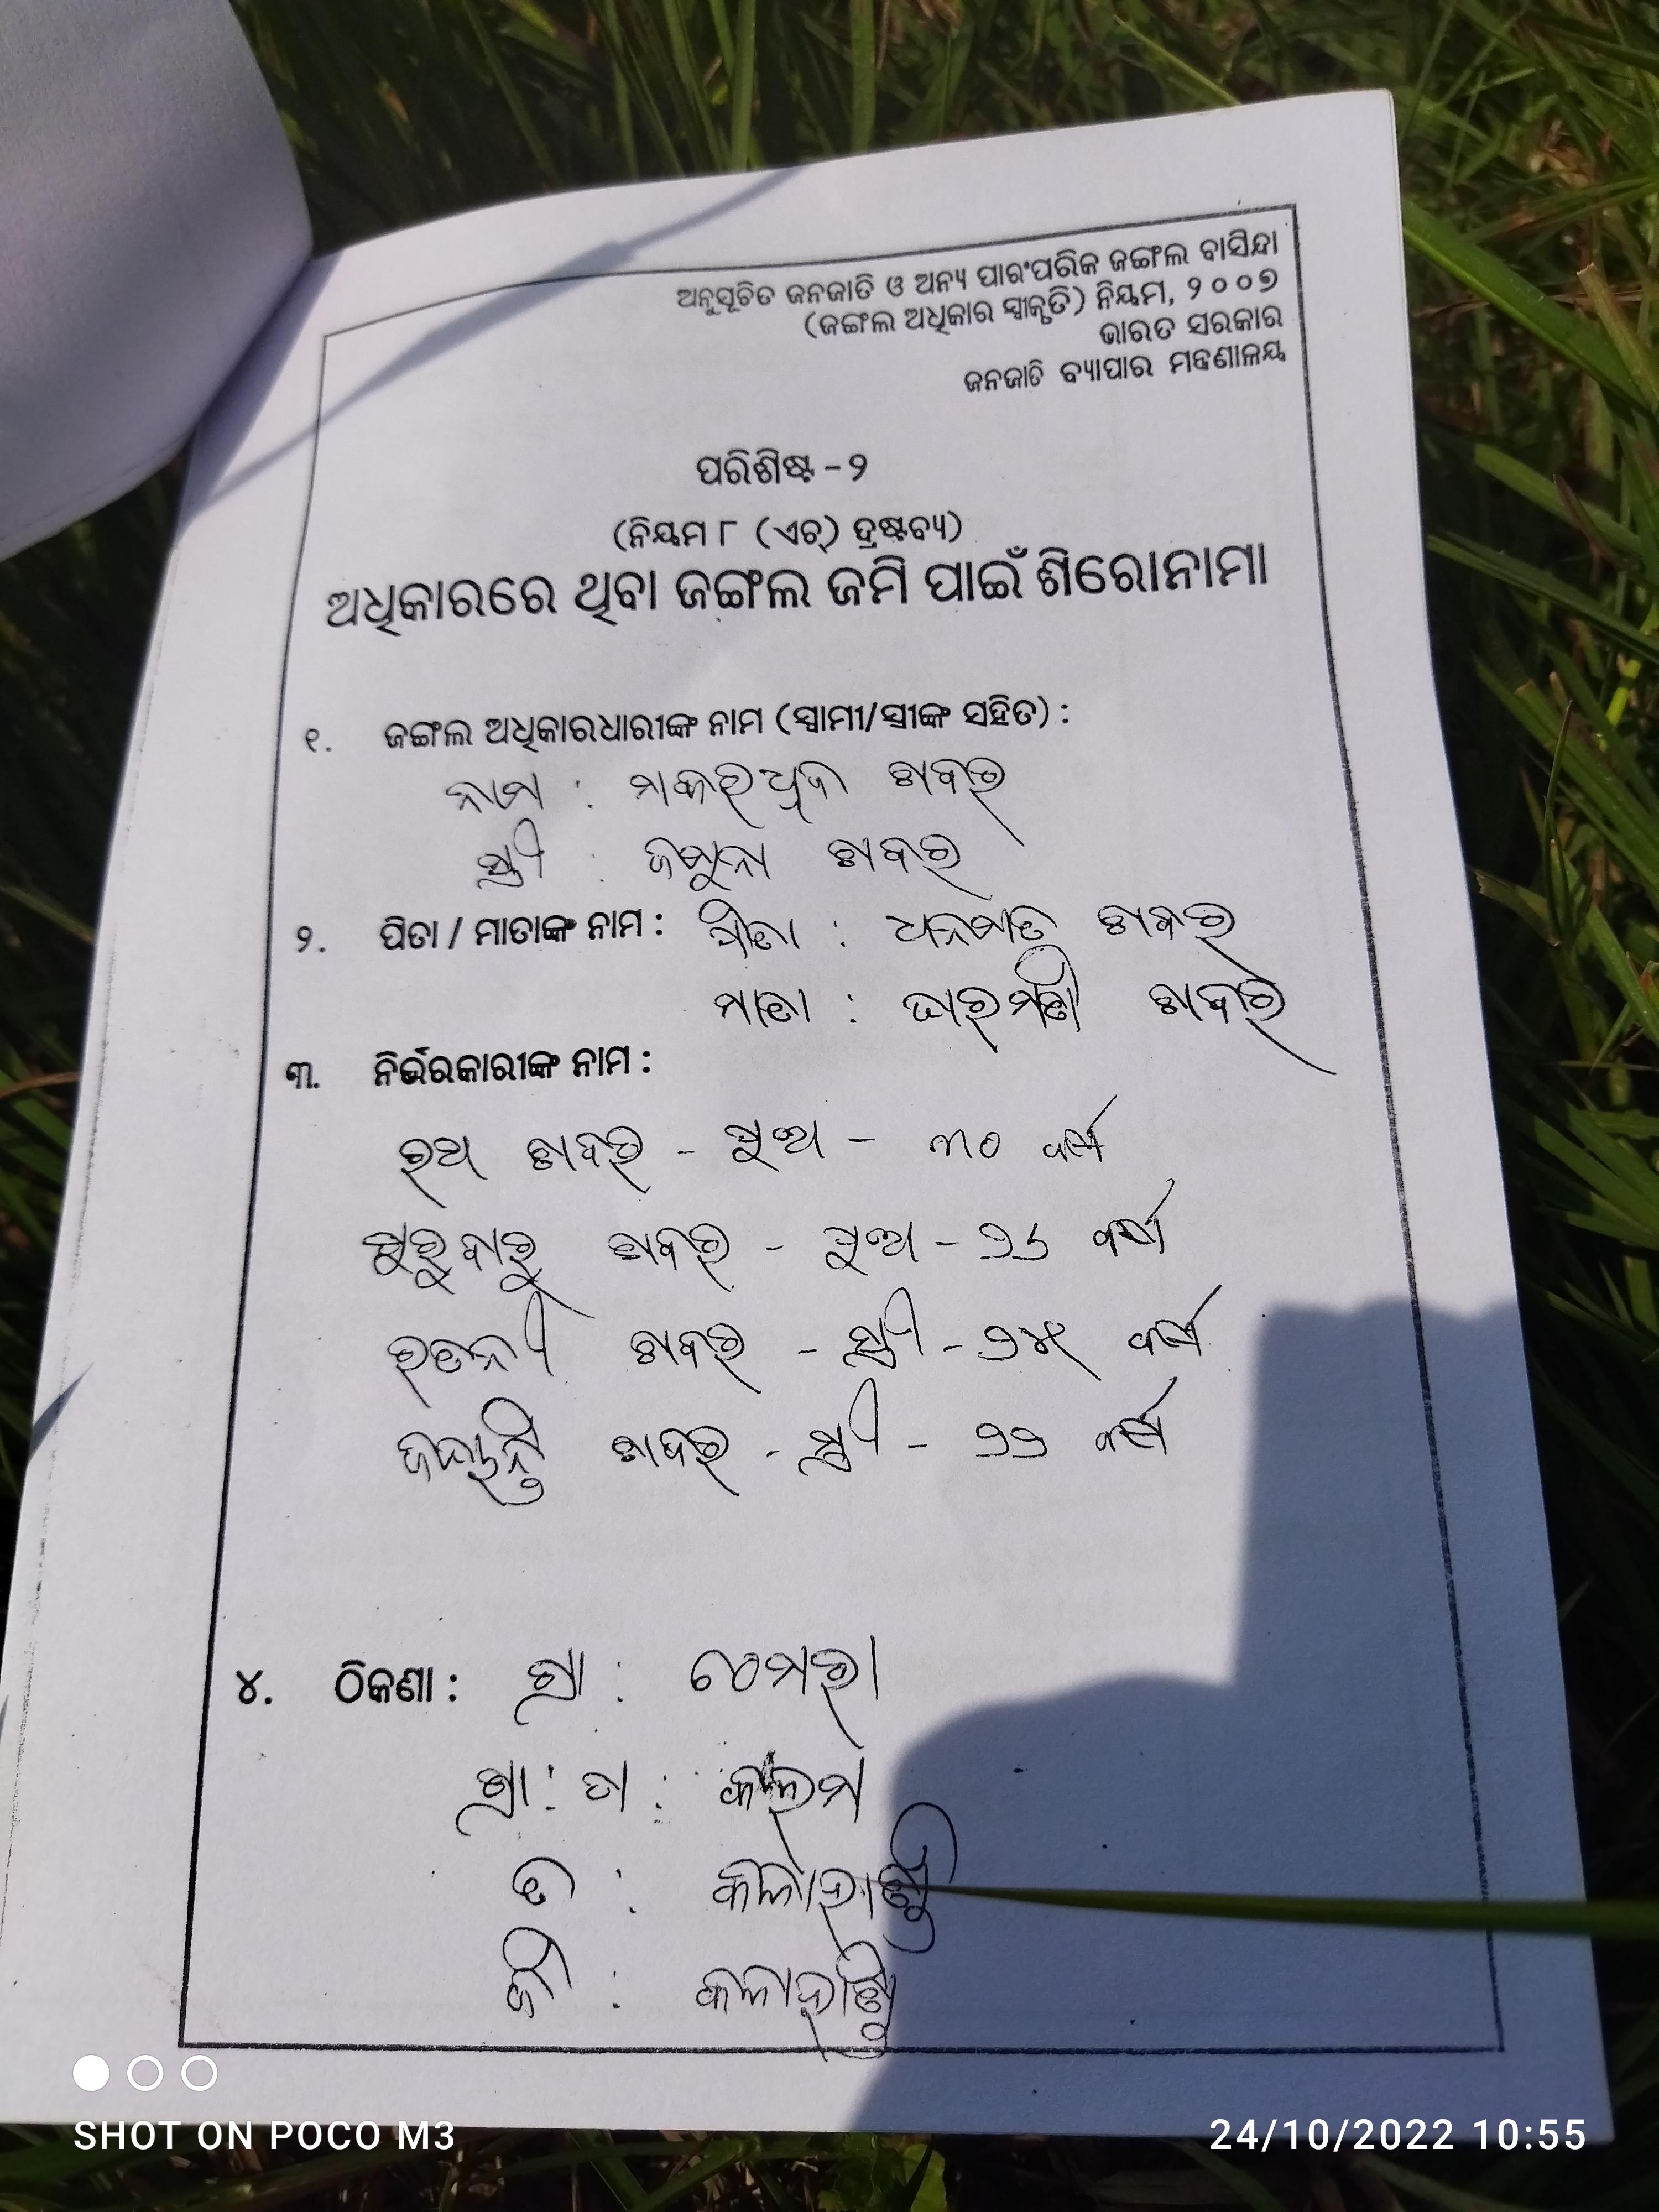 ଅନୁସୂଚିତ ଜନଜାତି ଓ ଅନ୍ୟ ପାରଂପରିକ ଜଙ୍ଗଲ ବାସିନ୍ଦା
(ଜଙ୍ଗଲ ଅଧିକାର ସ୍ୱୀକୃତି) ନିୟମ, ୨୦୦୭
ଭାରତ ସରକାର
ଜନଜାତି ବ୍ୟାପାର ମନ୍ତ୍ରଣାଳୟ
ପରିଶିଷ୍ଟ - ୨
(ନିୟମ ୮ (ଏଚ୍) ଦ୍ରଷ୍ଟବ୍ୟ)
ଅଧିକାରରେ ଥିବା ଜଙ୍ଗଲ ଜମି ପାଇଁ ଶିରୋନାମା
୧. ଜଙ୍ଗଲ ଅଧିକାରଧାରୀଙ୍କ ନାମ (ସ୍ୱାମୀ/ସ୍ତ୍ରୀଙ୍କ ସହିତ) :
ନାମ : ମକରଧ୍ଵଜ ଶବର
ସ୍ତ୍ରୀ : ଜମୁନା ଶବର
୨. ପିତା / ମାତାଙ୍କ ନାମ : ପିତା : ଧନମାତ ଶବର
ମାତା : ଶବର
୩. ନିର୍ଭରକାରୀଙ୍କ ନାମ :
ରଥ ଶବର - ପୁଅ - ୩୦ ବର୍ଷ
ଗୁରୁବାରୁ ଶବର - ପୁଅ - ୨୬ ବର୍ଷ
ଶବର - ସ୍ତ୍ରୀ - ବର୍ଷ
ଜୟନ୍ତି ଶବର - ସ୍ତ୍ରୀ - ୨୨ ବର୍ଷ
୪. ଠିକଣା : ଗ୍ରା : ଟେମରା
ଗ୍ରା : ପ : କଲମ
ବ : କଳାହାଣ୍ଡି
ଜି : କଳାହାଣ୍ଡି
SHOT ON POCO M3
24/10/2022 10:55